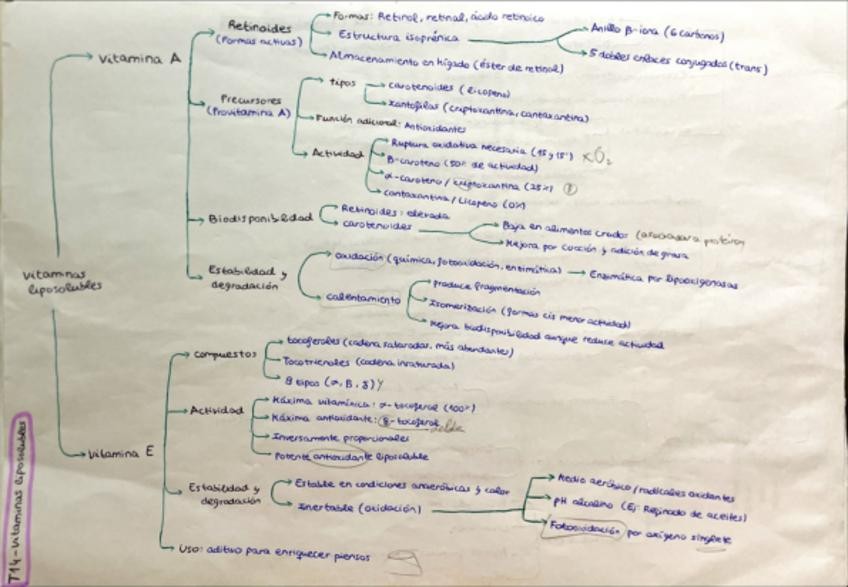 T14-Vitaminas liposolubles
Vitaminas liposolubles
Vitamina A
Retinoides
(Formas activas)
Formas: Retinol, retinal, ácido retinoico
Estructura isoprénica
Anillo β-iona (6 carbonos)
5 dobles enlaces conjugados (trans)
Almacenamiento en hígado (éster de retinol)
Precursores
(Provitamina A)
tipos
carotenoides (licopeno)
xantofilas (criptoxantina, cantaxantina)
Función adicional: Antioxidantes
Actividad
Ruptura oxidativa necesaria (15 y 15') x O₂
β-caroteno (50% de actividad)
α-caroteno / criptoxantina (25%)
cantaxantina / licopeno (0%)
Biodisponibilidad
Retinoides: elevada
carotenoides
Baja en alimentos crudos
Mejora por cocción y adición de grasa
Estabilidad y
degradación
oxidación (química, fotooxidación, enzimática)
Enzimática por lipooxigenasas
calentamiento
produce fragmentación
Isomerización (formas cis menor actividad)
Mejora biodisponibilidad aunque reduce actividad
Vitamina E
compuestos
tocoferoles (cadena saturada, más abundantes)
Tocotrienoles (cadena insaturada)
8 tipos
Actividad
Máxima vitamínica: α-tocoferol (100%)
Máxima antioxidante: δ-tocoferol
Inversamente proporcionales
Potente antioxidante liposoluble
Estabilidad y
degradación
Estable en condiciones anaeróbicas y calor
Inestable (oxidación)
Medio aeróbico / radicales oxidantes
pH alcalino (Ej: Refinado de aceites)
Fotooxidación por oxígeno singlete
Uso: aditivo para enriquecer piensos